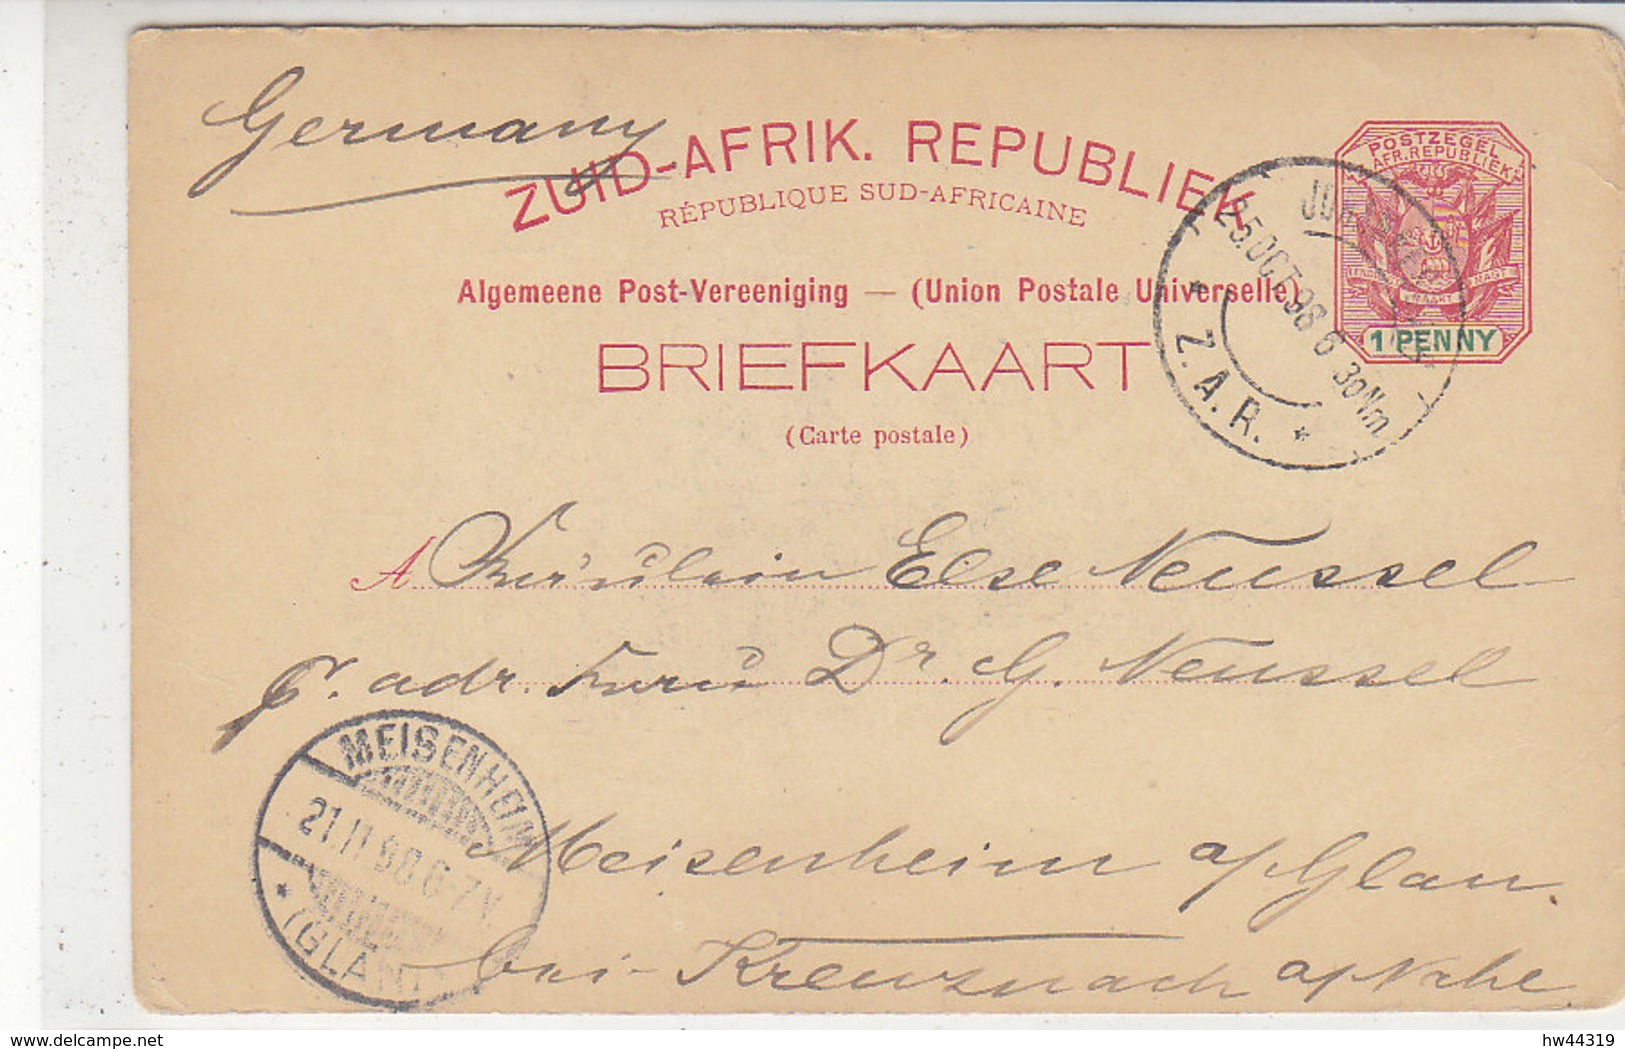 Germany
ZUID-AFRIK. REPUBLIEK
RÉPUBLIQUE SUD-AFRICAINE
Algemeene Post-Vereeniging — (Union Postale Universelle)
BRIEFKAART
(Carte postale)
POSTZEGEL
AFR. REPUBLIEK
MAGT
1 PENNY
25 OCT 98 6 30 Nm
Z.A.R.
A Fräulein Else Neussel
p. adr. Frau Dr. G. Neussel
Meisenheim a/Glan.
bei Kreuznach a/Nahe.
MEISENHEIM
21.11.98.6-7N.
(GLAN)
delcampe.net
hw44319